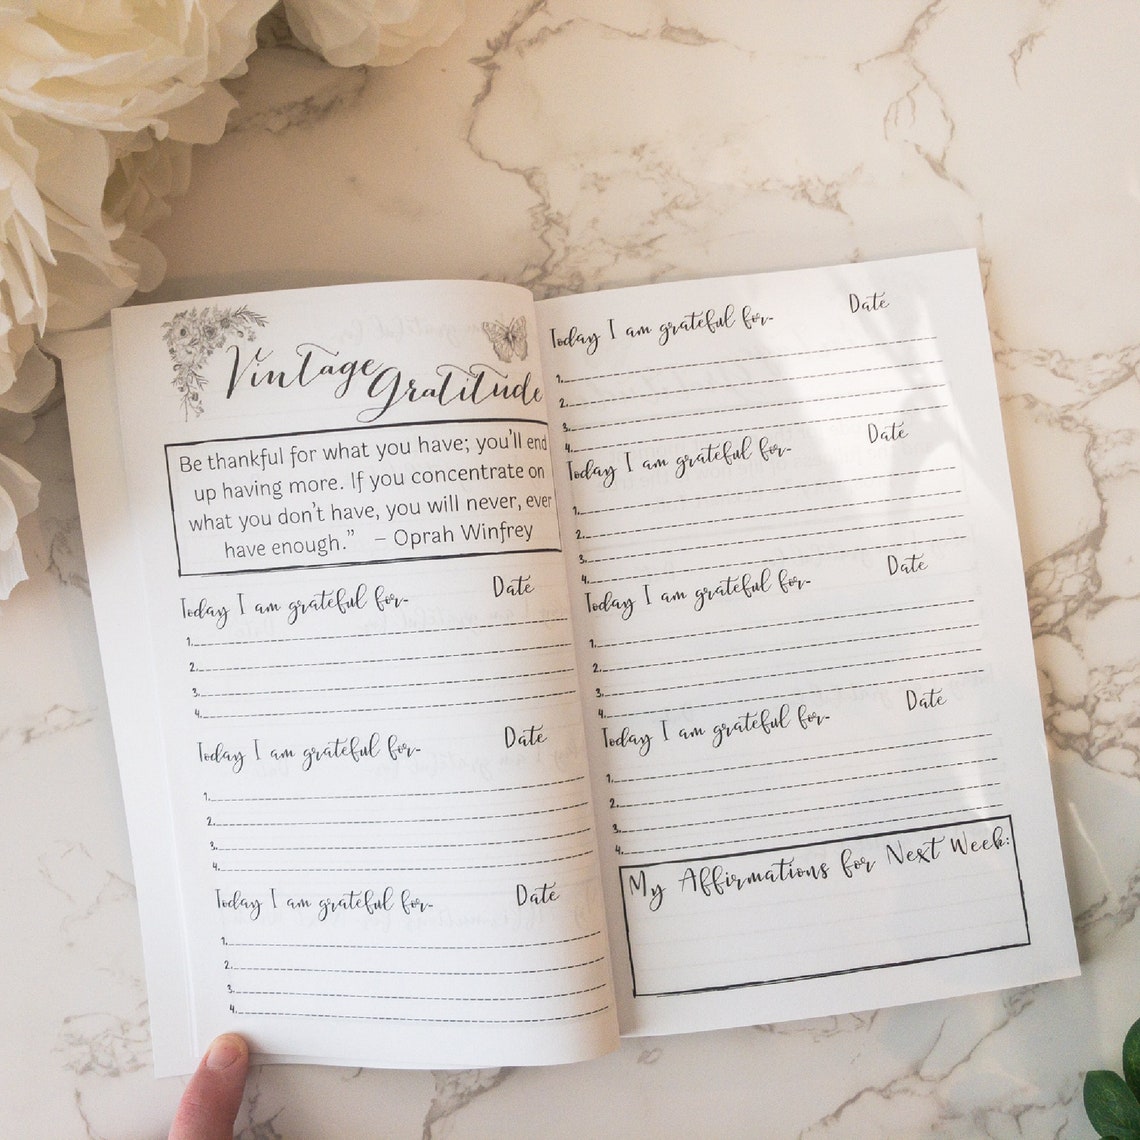 Vintage Gratitude
Be thankful for what you have; you'll end
up having more. If you concentrate on
what you don't have, you will never, ever
have enough.” – Oprah Winfrey
Today I am grateful for- Date
1.
2.
3.
4.
Today I am grateful for- Date
1.
2.
3.
4.
Today I am grateful for- Date
1.
2.
3.
4.
Today I am grateful for- Date
1.
2.
3.
4.
Today I am grateful for- Date
1.
2.
3.
4.
Today I am grateful for- Date
1.
2.
3.
4.
Today I am grateful for- Date
1.
2.
3.
4.
My Affirmations for Next Week: